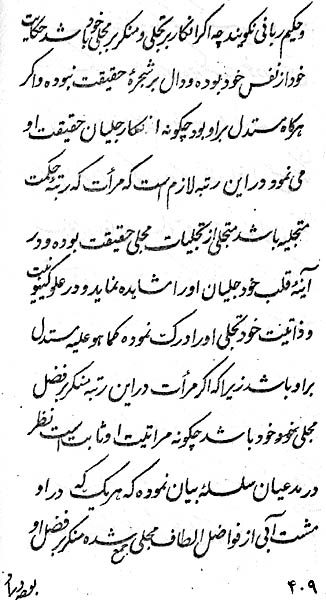 و حکیم ربانی نگویند چه اگر انکار بر تجلی و منکر بر مجلی خود باشد حکایت
خود از نفس خود بوده و دال بر شجرهٔ حقیقت نبوده و اگر
هرگاه مستدل بر او بود چگونه انکار جلیان حقیقت او
می نمود در این رتبه لازم است که مرآت که رتبهٔ حکمت
متجلیه باشد متجلی از تجلیات مجلی حقیقت بوده و در
آینهٔ قلب خود جلیان او را مشاهده نماید و در علو کینونیت
و ذاتیت خود تجلی او را درک نموده کما هو علیه مستدل
بر او باشد زیرا که اگر مرآت در این رتبه منکر بر فضل
مجلی خود باشد چگونه مرآتیت او ثابت است نظر
در مدعیان سلسلهٔ بیان نموده که هر یک که در او
مشت آبی از فواضل الطاف مجلی جمع شده منکر بر فضل او
۴۰۹